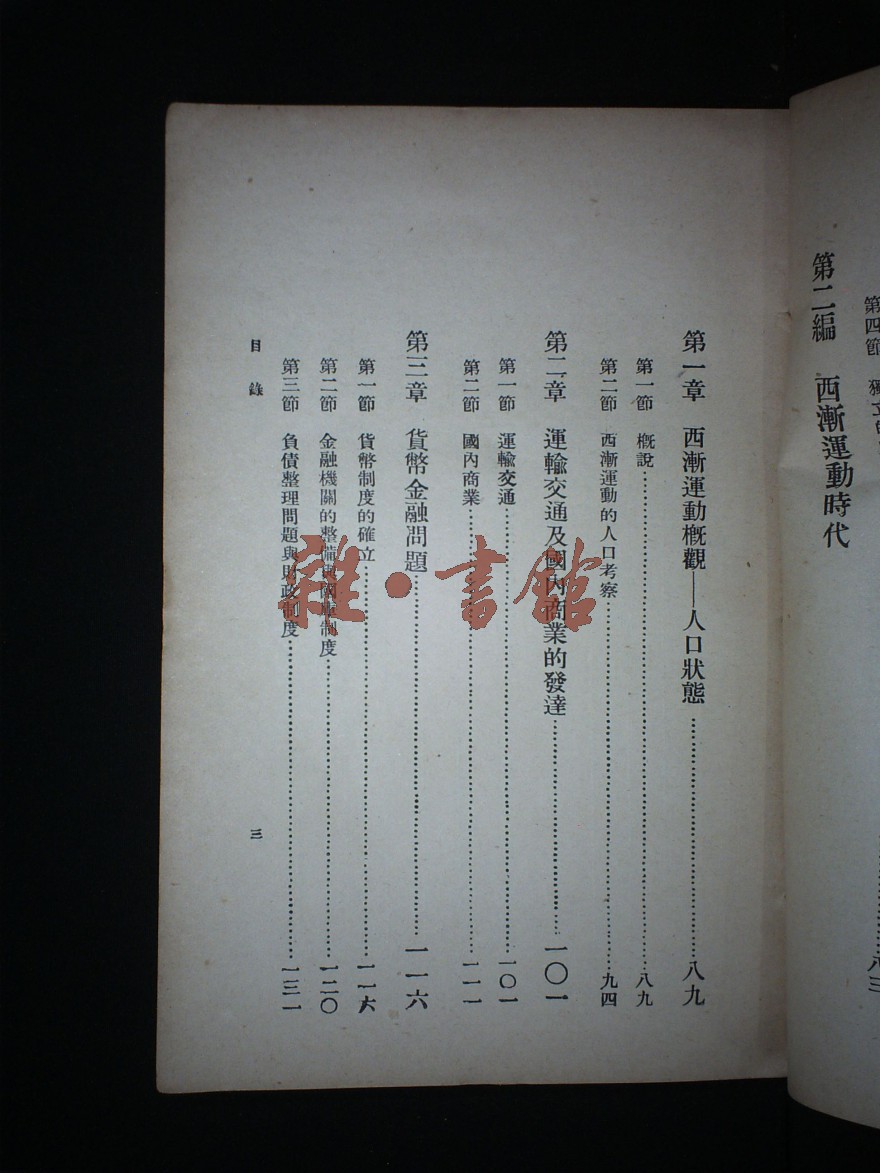 第四節
八三
第二編 西漸運動時代
第一章 西漸運動概觀——人口狀態……八九
第一節 概說……八九
第二節 西漸運動的人口考察……九四
第二章 運輸交通及國內商業的發達……一〇一
第一節 運輸交通……一〇一
第二節 國內商業……一一一
第三章 貨幣金融問題……一一六
第一節 貨幣制度的確立……一一六
第二節 金融機關的整備與國庫制度……一二〇
第三節 負債整理問題與財政制度……一三一
目錄
三
雜·書館